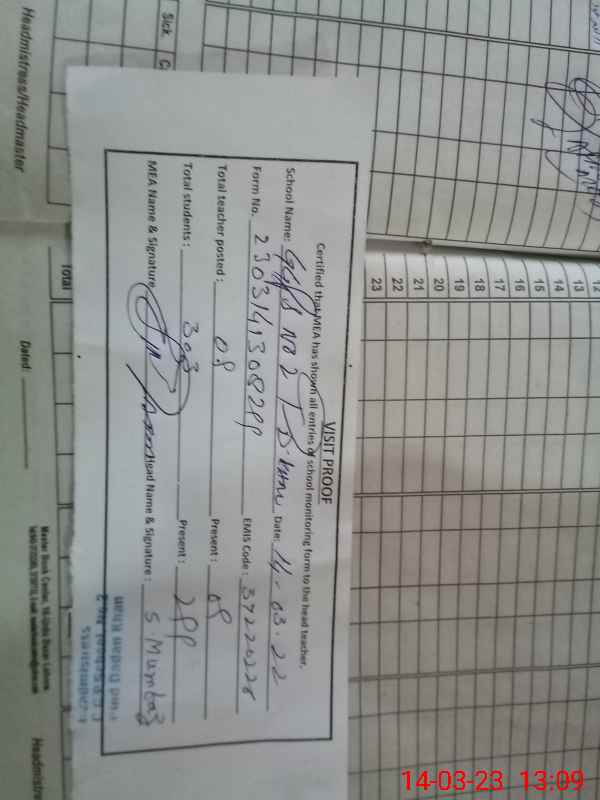 VISIT PROOF
Certified that MEA has shown all entries of school monitoring form to the head teacher.
School Name: GGPS no 2 Date: 14-03-22
Form No. 2303141308299 EMIS Code: 37220228
Total teacher posted: 08 Present: 08
Total students: 303 Present: 299
MEA Name & Signature Head Name & Signature: S. Mumtaz
Headmistress
Pind Dadan Khan
Headmistress/Headmaster
Sick
Total
Dated:
Headmistre
12
13
14
15
16
17
18
19
20
21
22
23
14-03-23 13:09